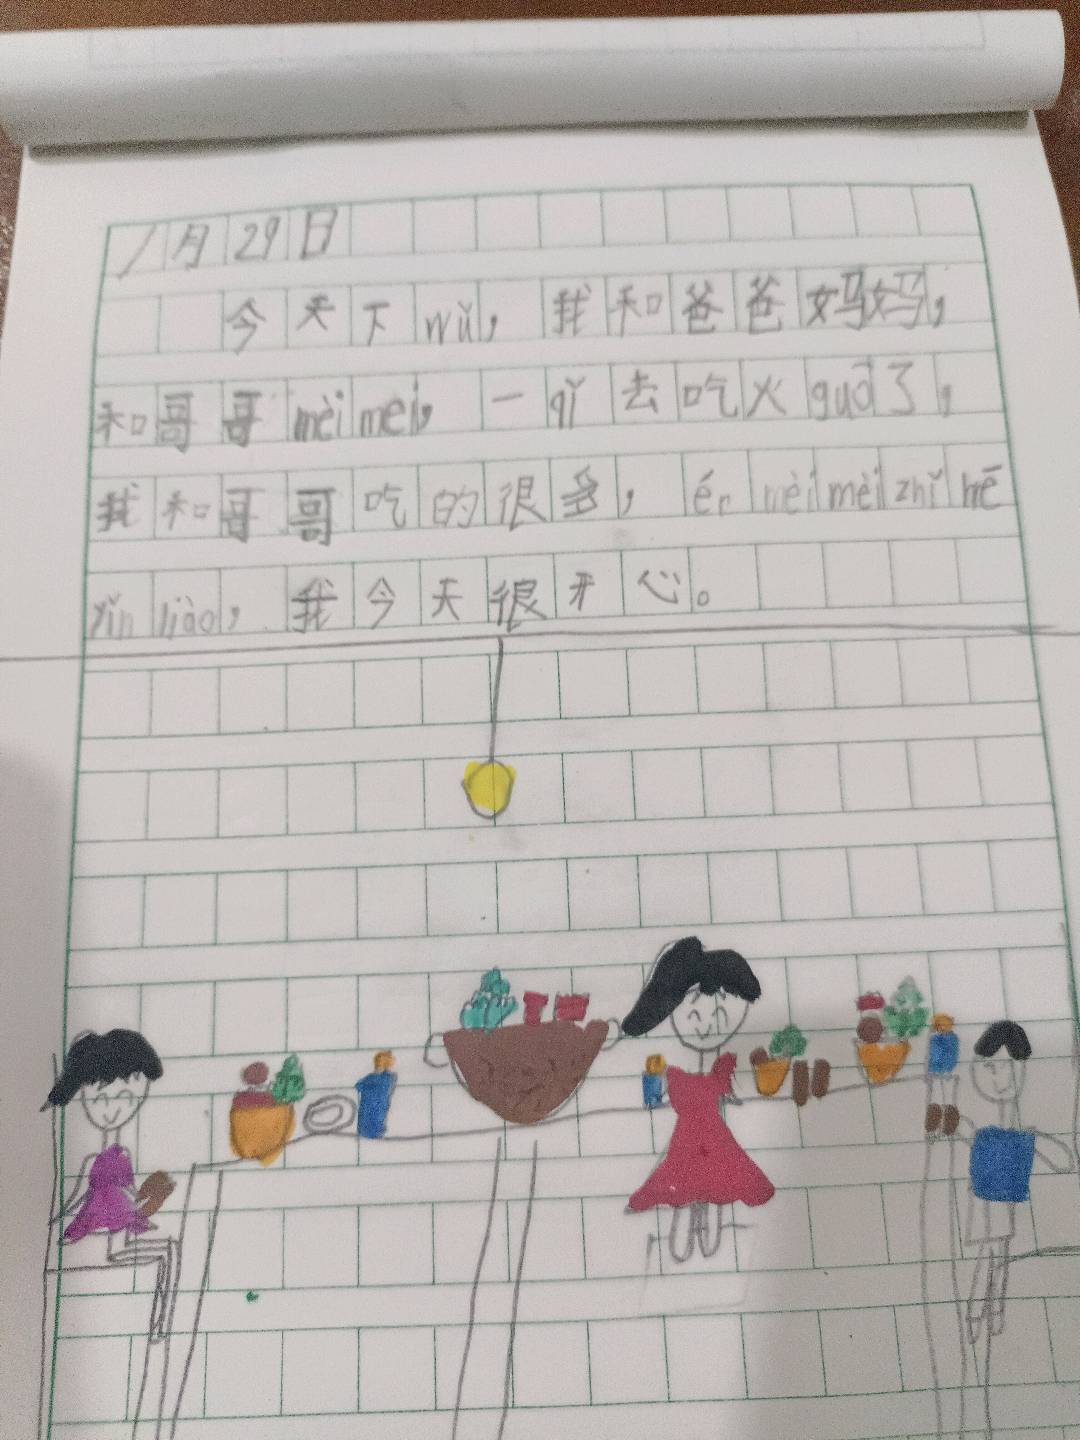 1月29日
今天下wǔ，我和爸爸妈妈，
和哥哥mèimei，一qǐ去吃火guō了，
我和哥哥吃的很多，ér mèimèi zhǐ hē
yǐn liào，我今天很开心。